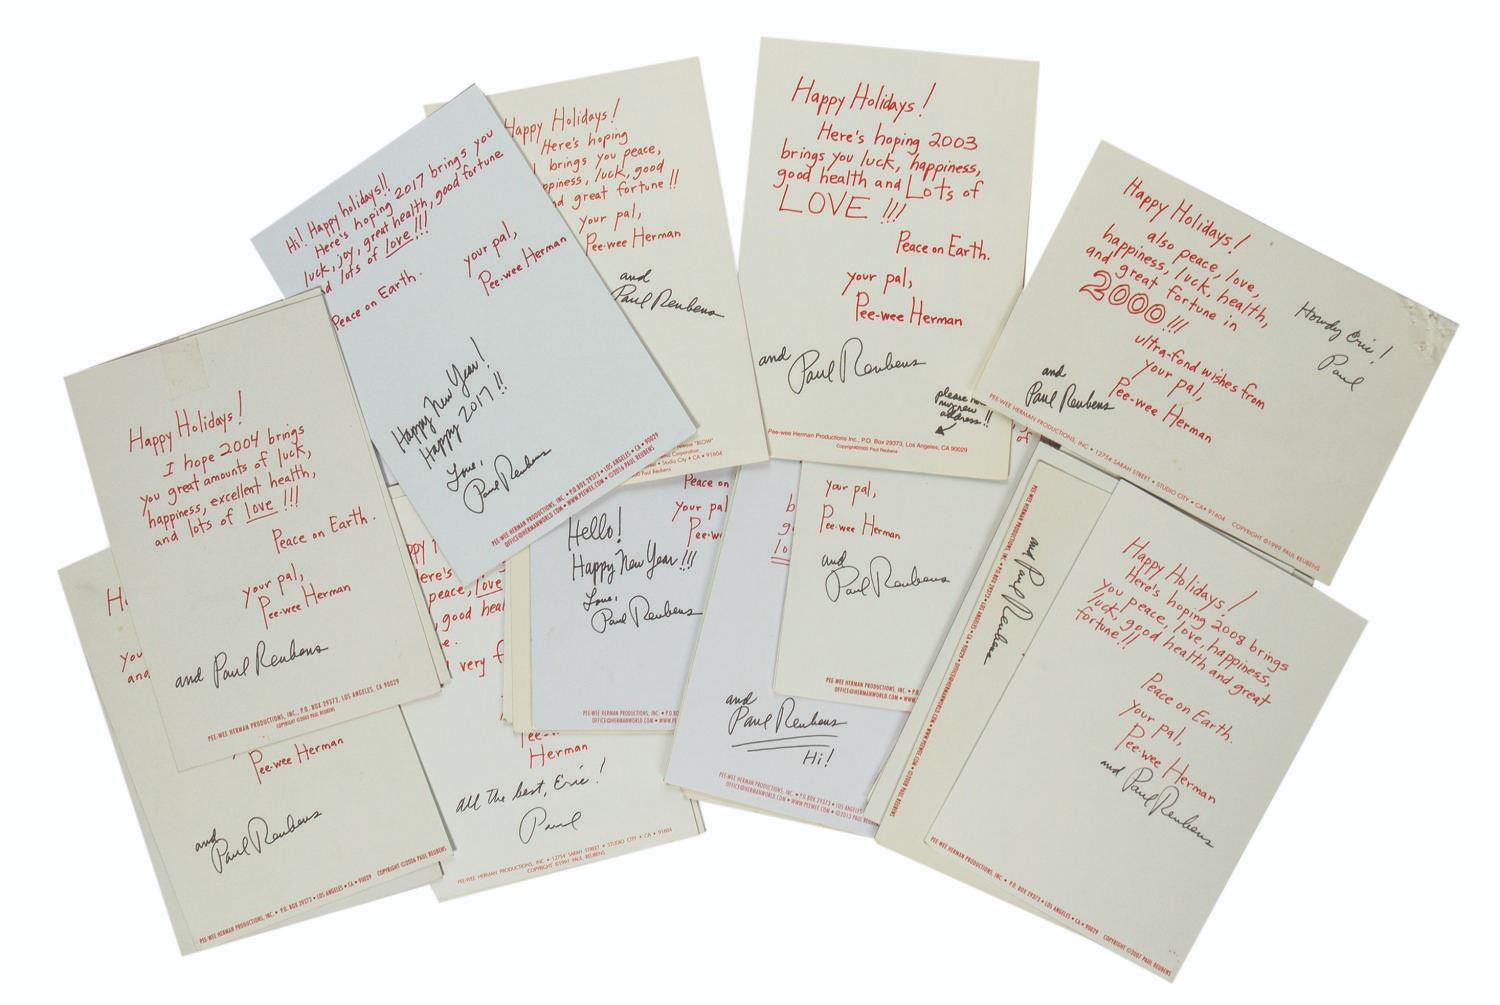 Hi! Happy holidays!!
Here's hoping 2017 brings you
luck, joy, great health, good fortune
lots of love!!!
your pal,
Pee-wee Herman
Peace on Earth.
Happy New Year!
Happy 2017!!
Love,
Paul Reubens
PEE-WEE HERMAN PRODUCTIONS, INC. • P.O. BOX 29373 • LOS ANGELES • CA • 90029
OFFICE@HERMANWORLD.COM • WWW.PEEWEE.COM • ©2016 PAUL REUBENS
Happy Holidays!
Here's hoping
brings you peace,
luck, good
great fortune!!
your pal,
Pee-wee Herman
and
Paul Reubens
"BLOW"
Corporation
Studio City • CA • 91604
Paul Reubens
Happy Holidays!
Here's hoping 2003
brings you luck, happiness,
good health and Lots of
LOVE!!!
Peace on Earth.
your pal,
Pee-wee Herman
and Paul Reubens
please
my new
address!!
Pee-wee Herman Productions Inc., P.O. Box 29373, Los Angeles, CA 90029
Copyright©2002 Paul Reubens
Happy Holidays!
also peace, love,
happiness, luck, health,
and great fortune in
2000!!!
ultra-fond wishes from
your pal,
Pee-wee Herman
and
Paul Reubens
Howdy Eric!
Paul
PEE-WEE HERMAN PRODUCTIONS, INC • 12754 SARAH STREET • STUDIO CITY • CA • 91604 COPYRIGHT ©1999 PAUL REUBENS
Happy Holidays!
I hope 2004 brings
you great amounts of luck,
happiness, excellent health,
and lots of love!!!
Peace on Earth.
your pal,
Pee-wee Herman
and Paul Reubens
PEE-WEE HERMAN PRODUCTIONS, INC., P.O. BOX 29373, LOS ANGELES, CA 90029
COPYRIGHT ©2003 PAUL REUBENS
you
and
Pee-wee Herman
and
Paul Reubens
PEE-WEE HERMAN PRODUCTIONS, INC. • P.O. BOX 29373 • LOS ANGELES • CA • 90029 COPYRIGHT ©2006 PAUL REUBENS
peace, love
good
very
Herman
All the best, Eric!
Paul
PEE-WEE HERMAN PRODUCTIONS, INC • 12754 SARAH STREET • STUDIO CITY • CA • 91604
COPYRIGHT ©1997 PAUL REUBENS
Peace on
your
Hello!
Happy New Year!!!
Love,
Paul Reubens
PEE-WEE HERMAN PRODUCTIONS, INC. • P.O.
OFFICE@HERMANWORLD.COM •
and
Paul Reubens
Hi!
PEE-WEE HERMAN PRODUCTIONS, INC. • P.O. BOX 29373 • LOS ANGELES
OFFICE@HERMANWORLD.COM • WWW.PEEWEE.COM • ©2013 PAUL
your pal,
Pee-wee Herman
and
Paul Reubens
PEE-WEE HERMAN PRODUCTIONS, INC. • P.O.
OFFICE@HERMANWORLD.COM •
and Paul Reubens
PEE-WEE HERMAN PRODUCTIONS, INC. • P.O. BOX 29373 • LOS ANGELES • CA • 90029 • OFFICE@HERMANWORLD.COM • WWW.PEEWEE.COM • ©2008 PAUL REUBENS
Happy Holidays!
Here's hoping 2008 brings
you peace, love, happiness,
luck, good health and great
fortune!!
Peace on Earth.
your pal,
Pee-wee Herman
and Paul Reubens
PEE-WEE HERMAN PRODUCTIONS, INC. • P.O. BOX 29373 • LOS ANGELES • CA • 90029 COPYRIGHT ©2007 PAUL REUBENS